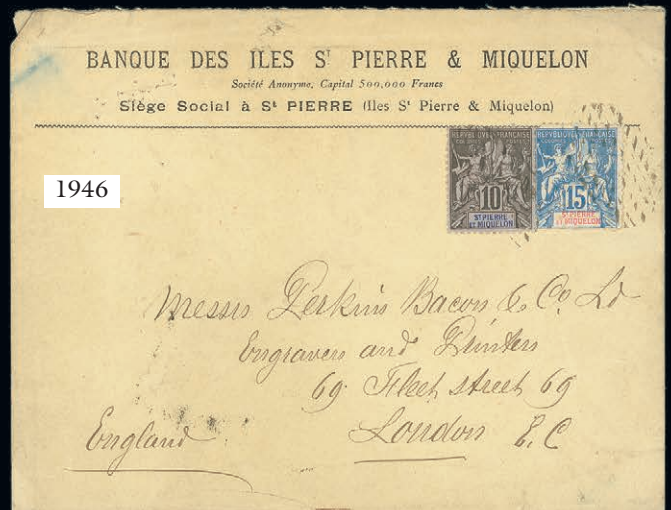 BANQUE DES ILES St PIERRE & MIQUELON
Société Anonyme, Capital 500,000 Francs
Siège Social à St PIERRE (Iles St Pierre & Miquelon)
REPUBLIQUE FRANÇAISE
COLONIES POSTES
10
St PIERRE
ET MIQUELON
REPUBLIQUE FRANÇAISE
15
St PIERRE
ET MIQUELON
1946
Messrs Perkins Bacon & Co. Ld
Engravers and Printers
69 Fleet street 69
London E.C
England